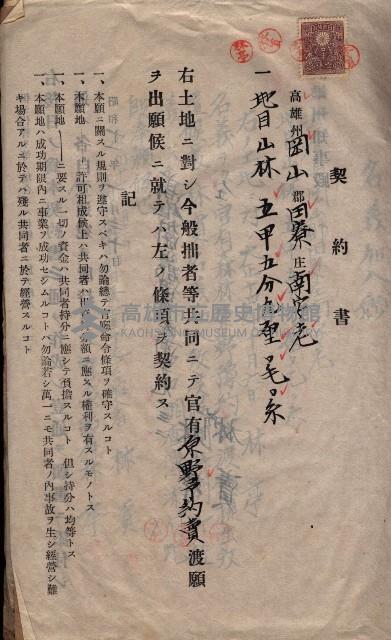 契約書
高雄州岡山郡田寮庄南安老
一地目山林 五甲五分九厘毛糸
右土地ニ對シ今般拙者等共同ニテ官有原野予約賣渡願
ヲ出願候ニ就テハ左ノ條項ヲ契約ス
記
一、本願ニ關スル規則ヲ遵守スベキハ勿論總テ官憲命令條項ヲ確守スルコト
一、本願地ハ許可相成候上ハ共同者ハ出額ニ應スル權利ヲ有スルモノトス
一、本願地ニ要スル一切ノ資金ハ共同者持分ニ應シテ負擔スルコト 但シ持分ハ均等トス
一、本願地ハ成功期限内ニ事業ヲ成功セシムルコトハ勿論若シ萬一ニモ共同者ノ内事故ヲ生シ經營シ難
キ場合アルニ於テハ殘ル共同者ニ於テ經營スルコト
高雄市立歷史博物館